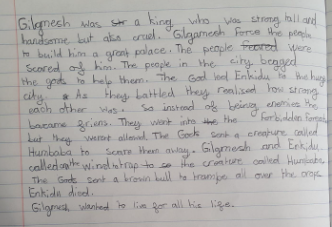 Gilgmesh was a king who was strong tall and
handsome but also cruel. Gilgamesh force the people
to build him a great palace. The people feared were
Scared of him. The people in the city begged
the gods to help them. The God led Enkidu to the huge
city. As they battled they realised how strong
each other was. So instead of being enemies the
became friens. They went into the forbidden forest
but they werent allowed. The Gods sent a creature called
Humbaba to scare them away. Gilgmesh and Enkidu
called the wind to trap the creature called Humbaba.
The Gods sent a brown bull to trample all over the crops
Enkidu died.
Gilgmesh wanted to live for all his life.